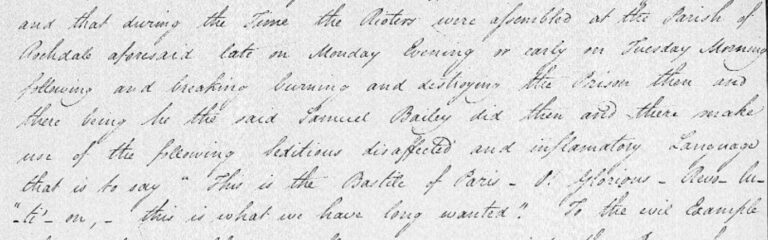 and that during the Time the Rioters were assembled at the Parish of
Rochdale aforesaid late on Monday Evening or early on Tuesday Morning
following and breaking burning and destroying the Prison then and
there being he the said Samuel Bailey did then and there make
use of the following seditious disaffected and inflamatory Language
that is to say " This is the Bastile of Paris - O! Glorious - Revo-lu-
"-ti'- on, - this is what we have long wanted". To the evil Example